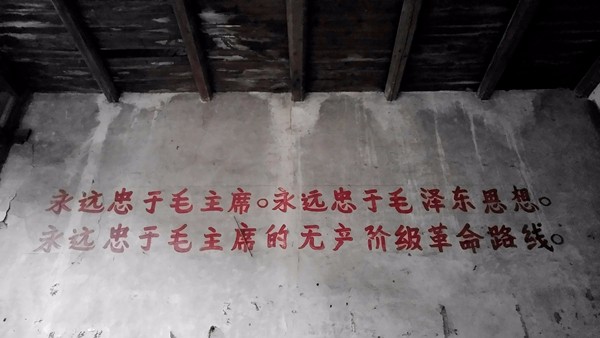 永远忠于毛主席。永远忠于毛泽东思想。
永远忠于毛主席的无产阶级革命路线。